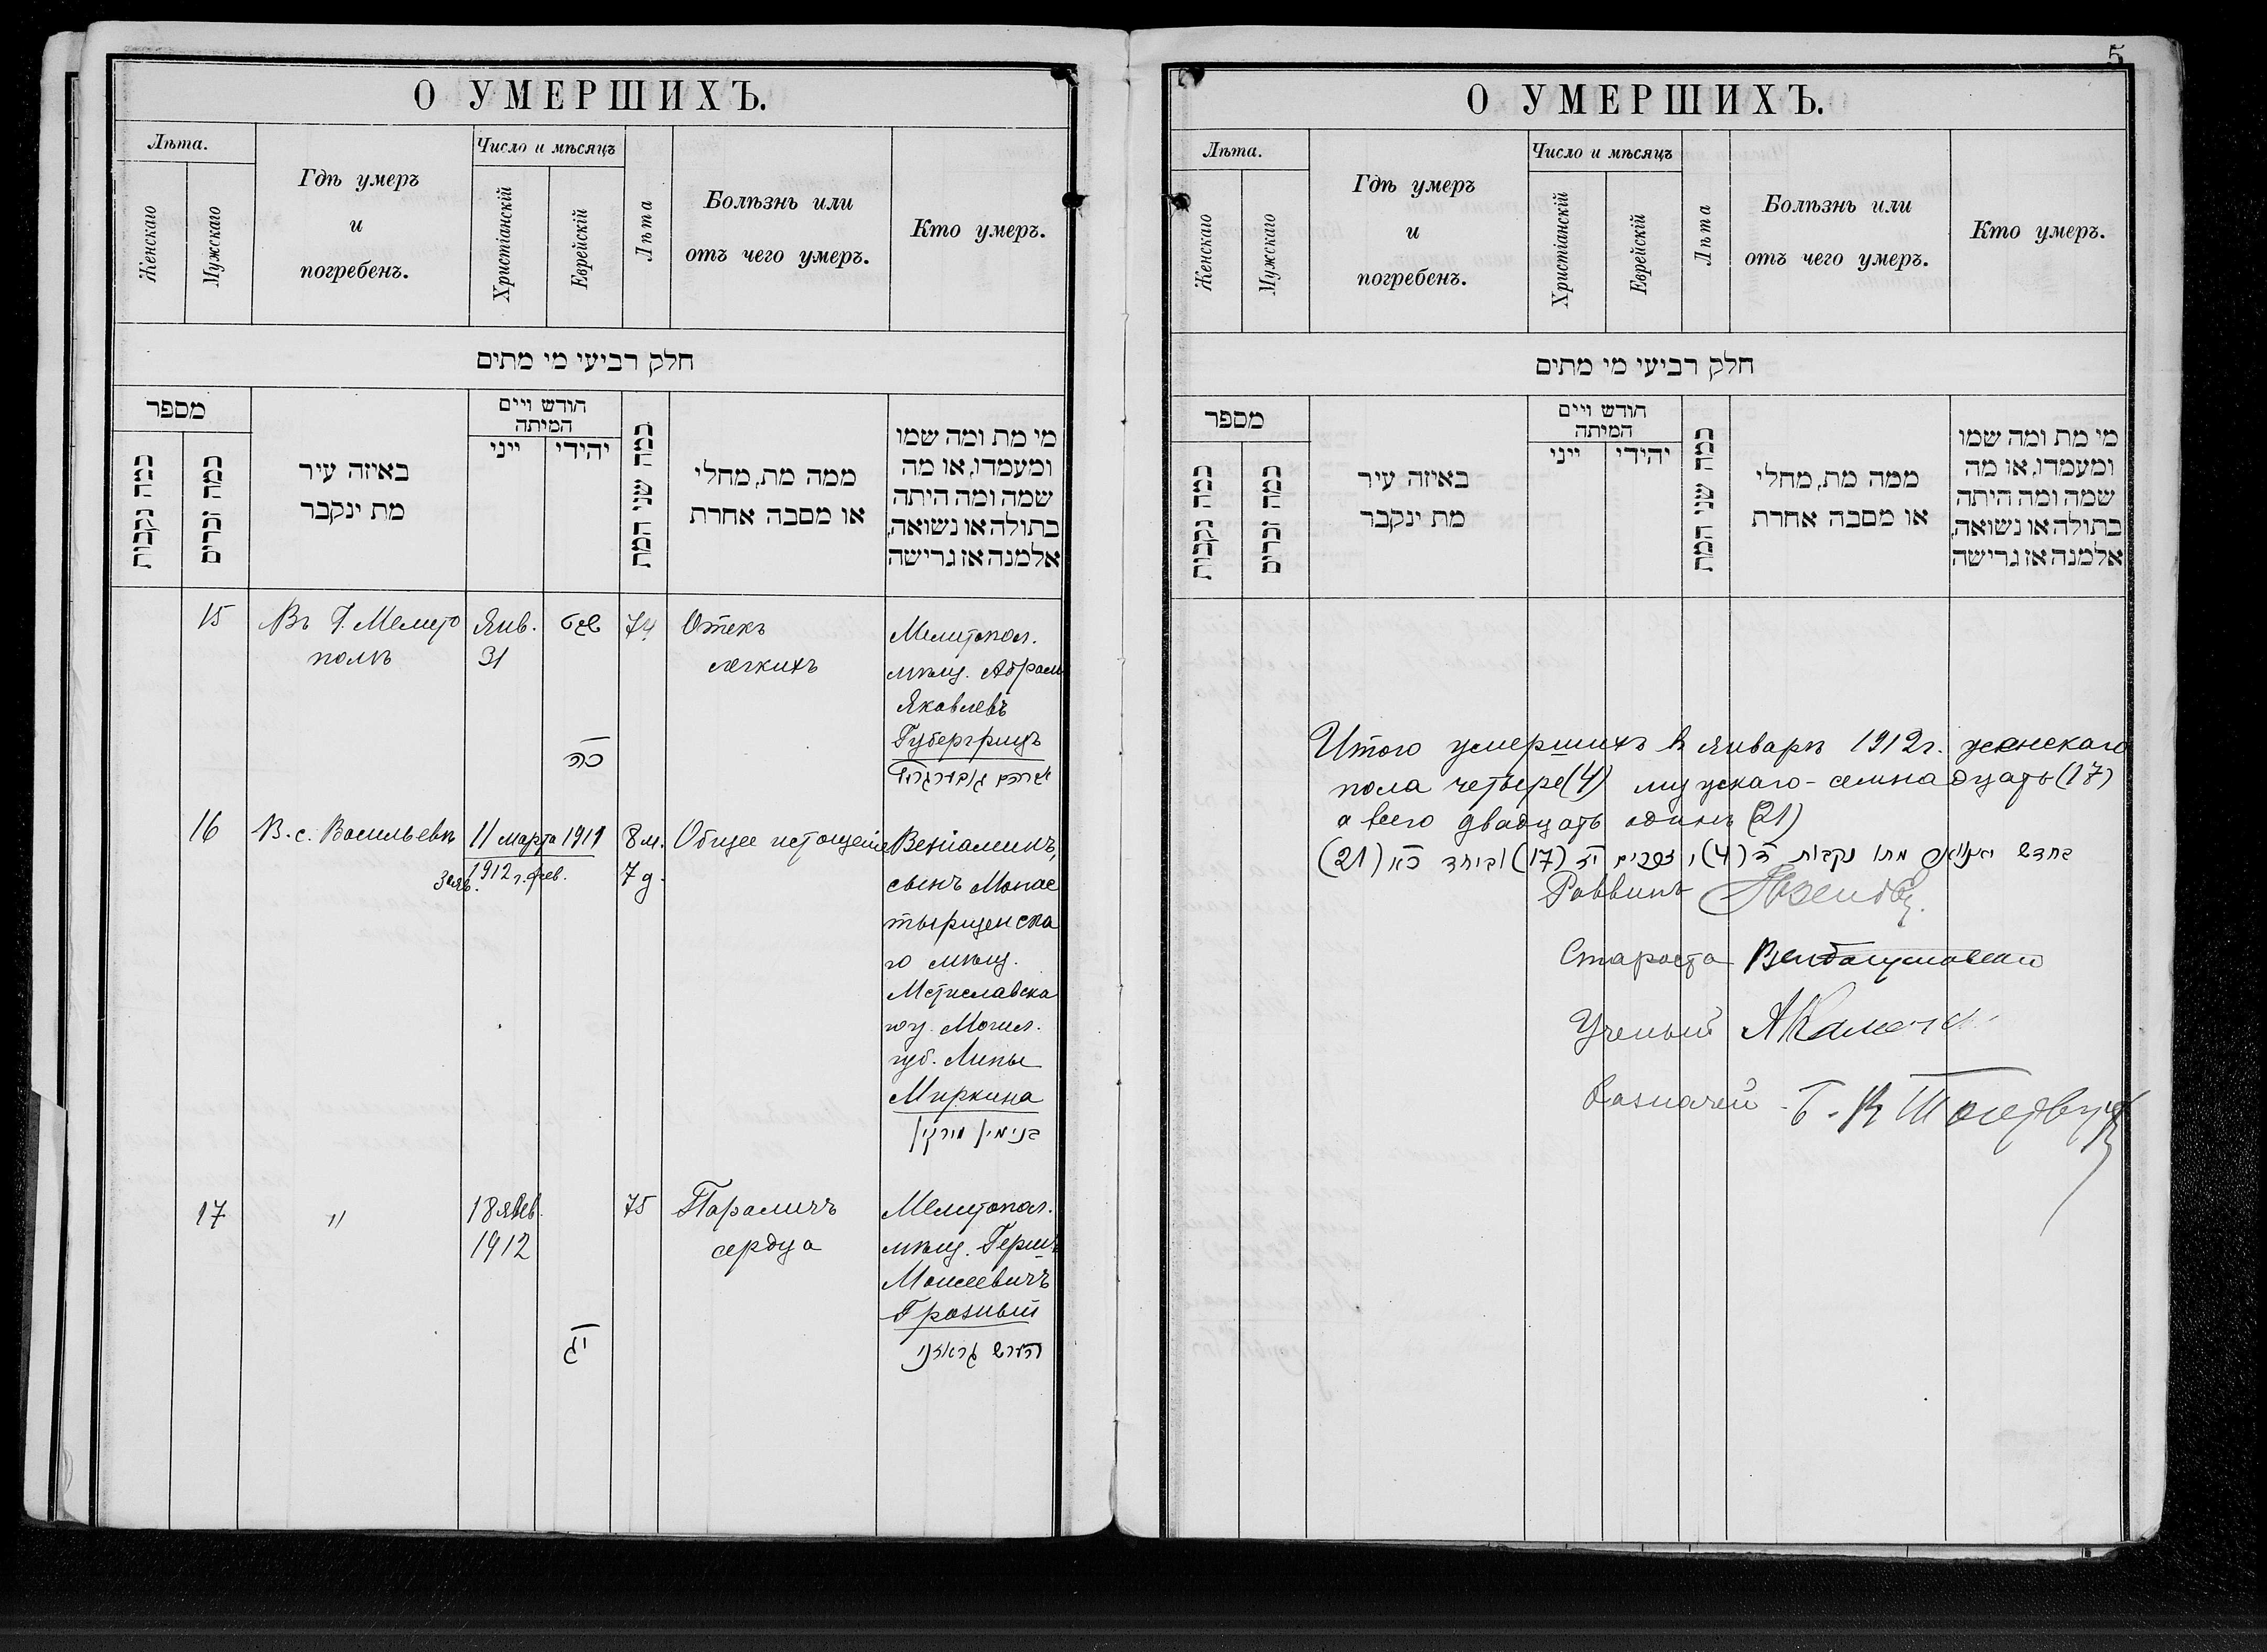 О УМЕРШИХЪ.
Лѣта.
Женскаго
Мужскаго
Гдѣ умеръ
и
погребенъ.
Число и мѣсяцъ
Христіанскій
Еврейскій
Лѣта
Болѣзнь или
отъ чего умеръ.
Кто умеръ.
חלק רביעי מי מתים
מספר
כמה נקבות
כמה זכרים
באיזה עיר
מת ינקבר
חודש ויים
המיתה
ייני
יהידי
כמה שני המת
ממה מת, מחלי
או מסבה אחרת
מי מת ומה שמו
ומעמדו, או מה
שמה ומה היתה
בתולה או נשואה,
אלמנה אז גרישה
15
Въ Г. Мелито
полѣ
Янв.
31
שבט
כה
74
Отекъ
легкихъ
Мелитопол.
мѣщ. Абрам
Яковлевъ
Губергрицъ
16
В. с. Васильевкѣ
11 марта 1911
1912 г. фев.
8 м.
7 д.
Общее истощеніе
Веніаминъ,
сынъ Монас
тырщенска
го мѣщ.
Мстиславска
го у. Могил.
губ. Липы
Миркина
בנימין מירקין
17
"
18 янв.
1912
יג
75
Параличъ
сердца
Мелитопол.
мѣщ. Герш
Моисеевичъ
Грозный
הירש גראזני
5
О УМЕРШИХЪ.
Лѣта.
Женскаго
Мужскаго
Гдѣ умеръ
и
погребенъ.
Число и мѣсяцъ
Христіанскій
Еврейскій
Лѣта
Болѣзнь или
отъ чего умеръ.
Кто умеръ.
חלק רביעי מי מתים
מספר
כמה נקבות
כמה זכרים
באיזה עיר
מת ינקבר
חודש ויים
המיתה
ייני
יהידי
כמה שני המת
ממה מת, מחלי
או מסבה אחרת
מי מת ומה שמו
ומעמדו, או מה
שמה ומה היתה
בתולה או נשואה,
אלמנה אז גרישה
Итого умершихъ в январѣ 1912 г. женскаго
пола четыре (4) мужскаго - семнадцать (17)
а всего двадцать одинъ (21)
בחדש יאנואר מתו נקבות ד (4) ו זכרים יז (17) וביחד כא (21)
Раввинъ
Староста
Ученый
Казначей